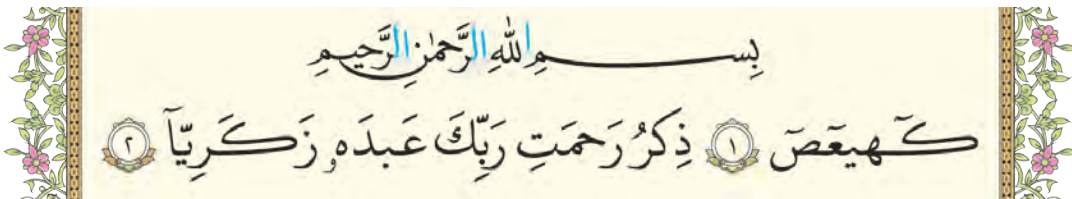 بِسمِ اللهِ الرَّحمٰنِ الرَّحيمِ
كـهيعص ١ ذِكرُ رَحمَتِ رَبِّكَ عَبدَه زَكَرِيّا ٢